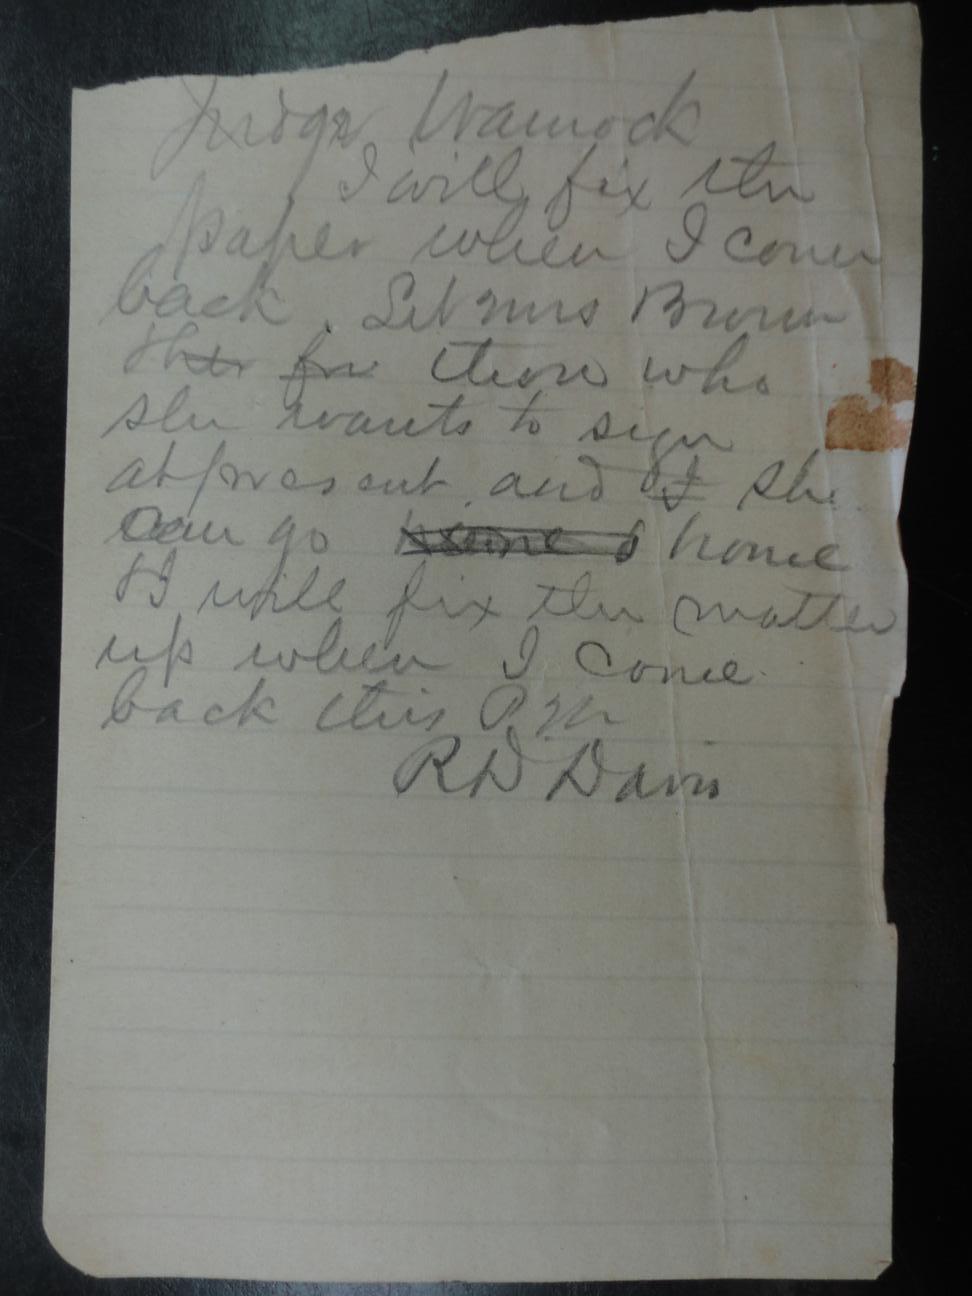 Judge Warnock
I will fix the
paper when I come
back. Let Mrs Brown
those who
she wants to sign
at present and I she
can go home
I will fix the matter
up when I come
back this P.M
R D Davis